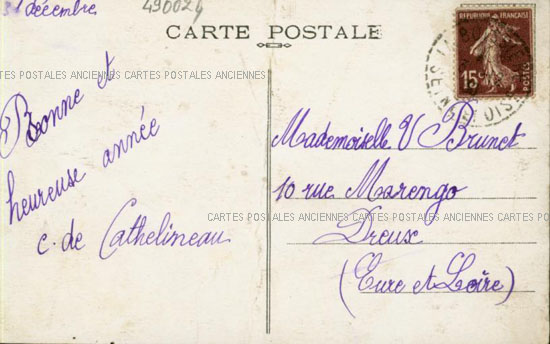 31 décembre
490024
CARTE POSTALE
REPUBLIQUE FRANÇAISE
15c
POSTES
OISE
CARTES POSTALES ANCIENNES CARTES POSTALES ANCIENNES
Bonne et
heureuse année
c. de Cathelineau
Mademoiselle V Brunet
10 rue Marengo
CARTES POSTALES ANCIENNES CARTES POSTALES ANCIENNES CARTES POSTALES
Dreux
(Eure et Loire)